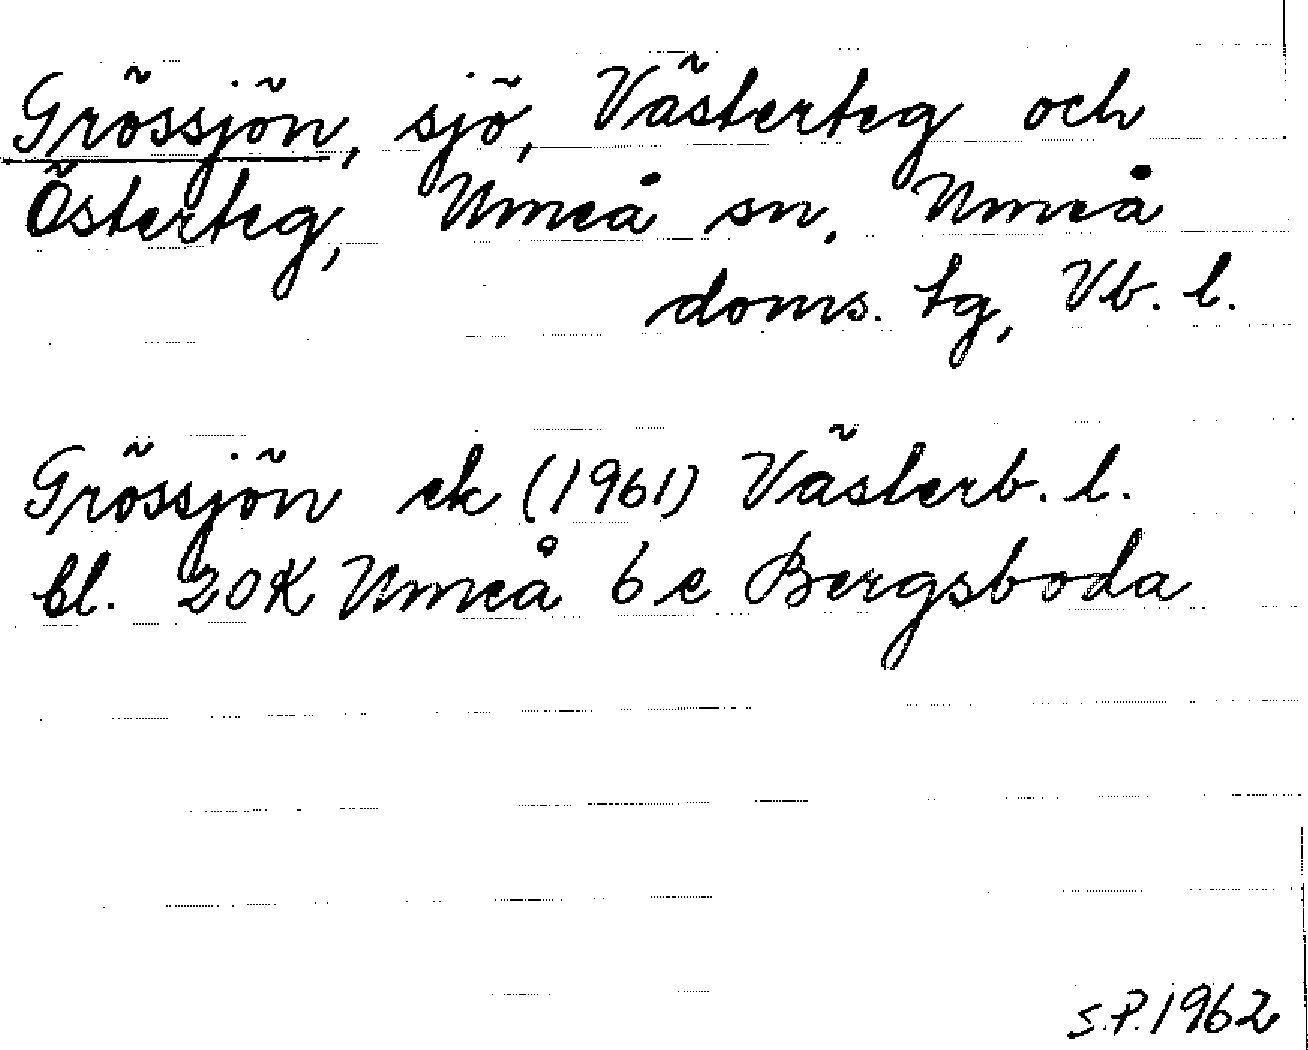 Grössjön, sjö, Västerteg och
Österteg, Umeå sn, Umeå
doms. tg, Vb. l.
Grössjön ek (1961) Västerb. l.
bl. 20K Umeå 6 e Bergsboda
S.P. 1962